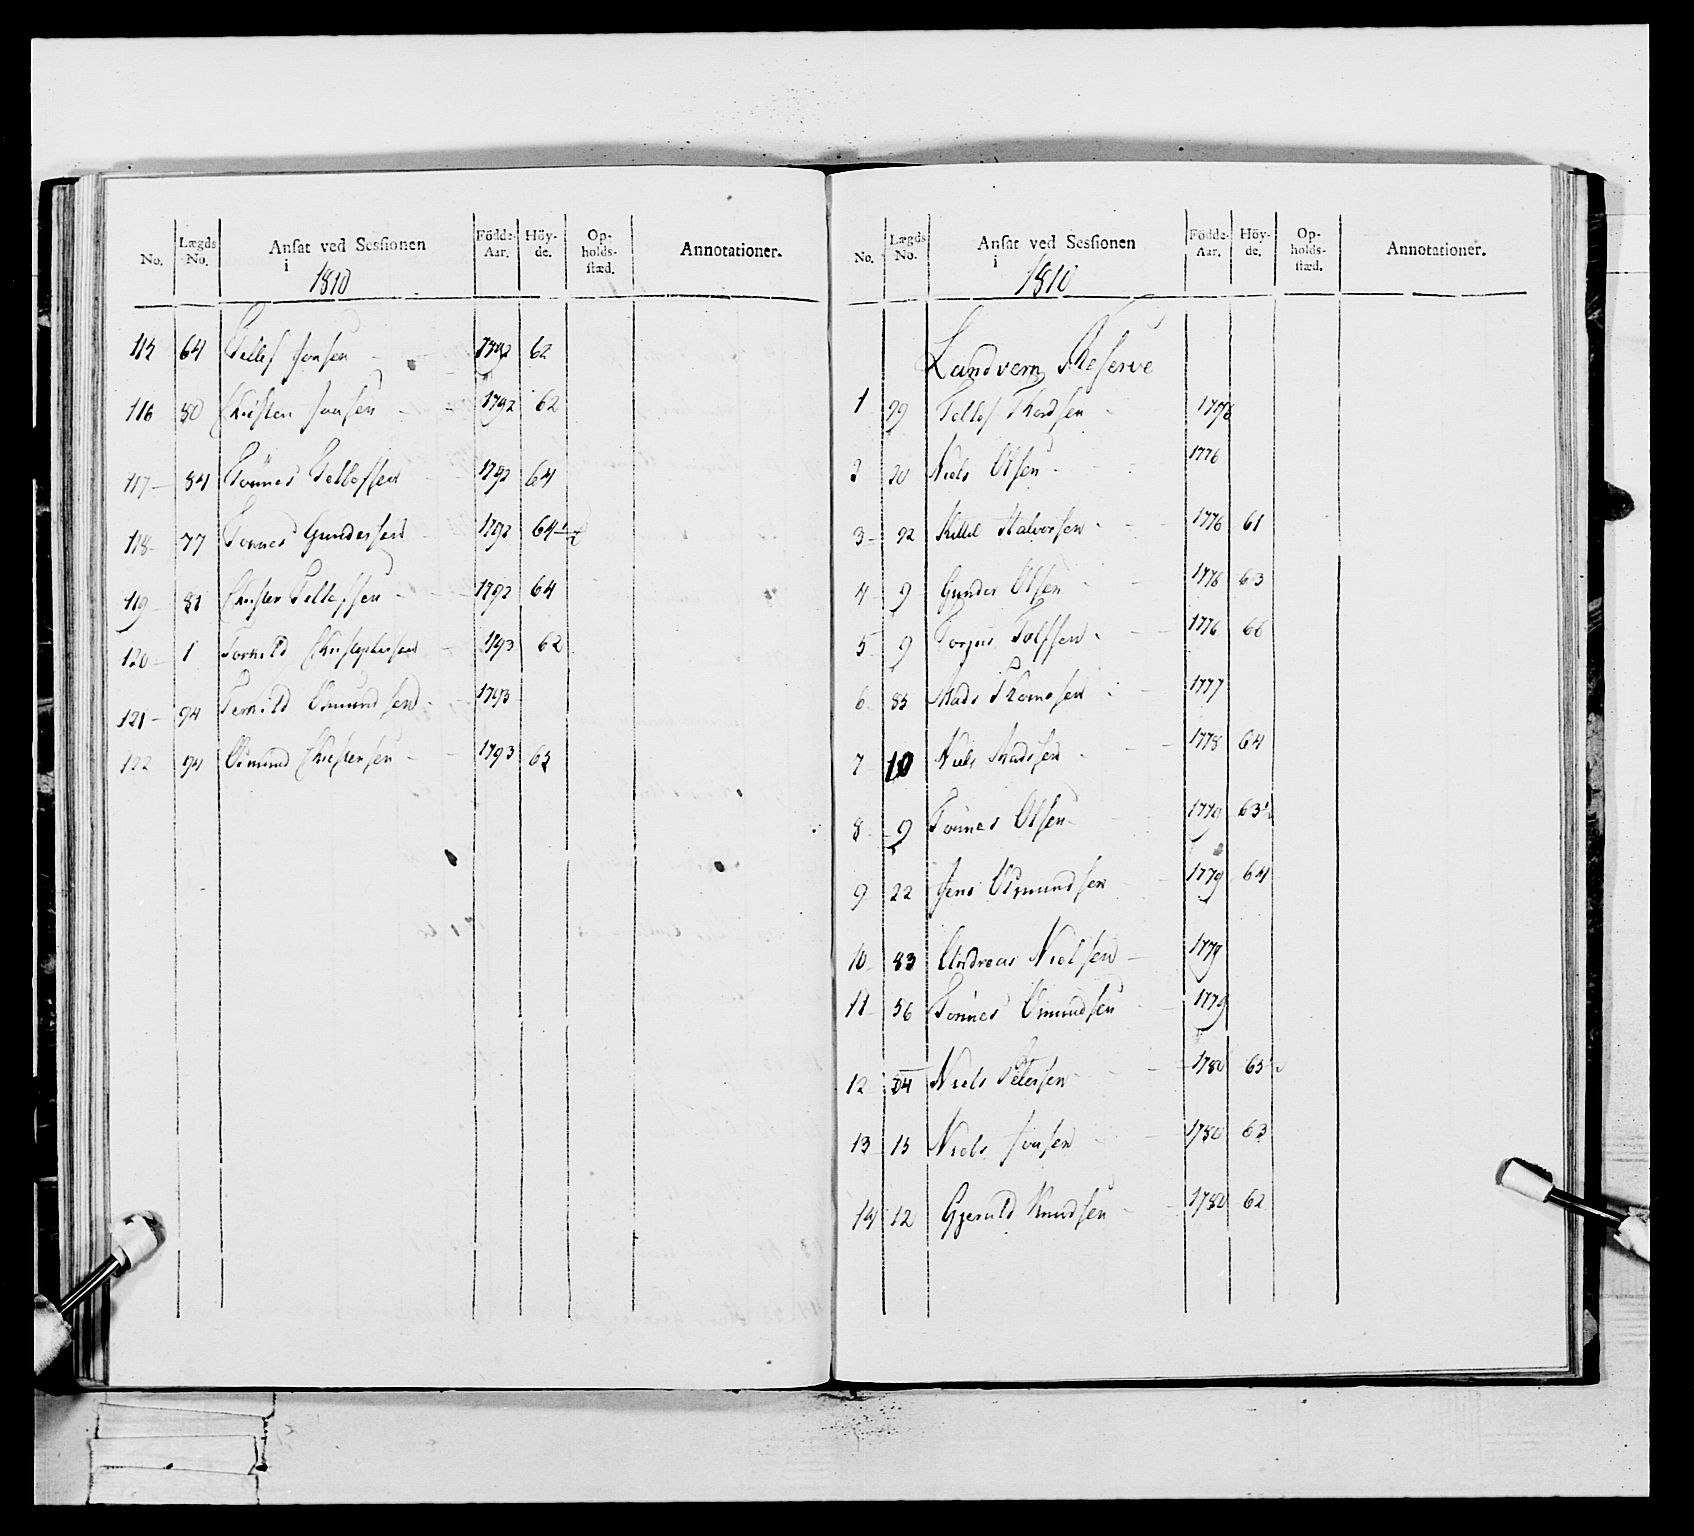 No. Lægds No. Ansat ved Sessionen i 1810 Födde-Aar. Höy-de. Op-holds-stæd. Annotationer.
115 64 Tellef Jonsen 1792 62
116 80 Christen Jansen 1792 62
117 84 Tönnes Tellefsen 1792 64
118 77 Tonnes Gundersen 1792 64½
119 81 Christen Tellefsen 1792 64
120 1 Torkild Christophersen 1793 62
121 94 Terkild Osmundsen 1793
122 94 Osmund Christensen 1793 63
No. Lægds No. Ansat ved Sessionen i 1810 Födde-Aar. Höy-de. Op-holds-stæd. Annotationer.
Landværn Reserve
1 99 Tellef Thordsen 1776
2 20 Niels Olsen 1776
3 92 Killil Halvorsen 1776 61
4 9 Gunder Olsen 1776 63
5 9 Torjus Tolfsen 1776 66
6 85 Mads Thomesen 1777
7 10 Niels Madsen 1778 64
8 9 Tönnes Olsen 1779 63½
9 22 Jens Osmundsen 1779 64
10 83 Andreas Nielsen 1779
11 56 Tönnes Osmundsen 1779
12 34 Niels Petersen 1780 65½
13 15 Niels Jonsen 1780 63
14 12 Gjeruld Knudsen 1780 62